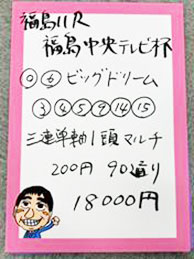 福島11R
福島中央テレビ杯
◎⑥ビッグドリーム
③④⑤⑨⑭⑮
三連単軸1頭マルチ
200円 90通り
18000円